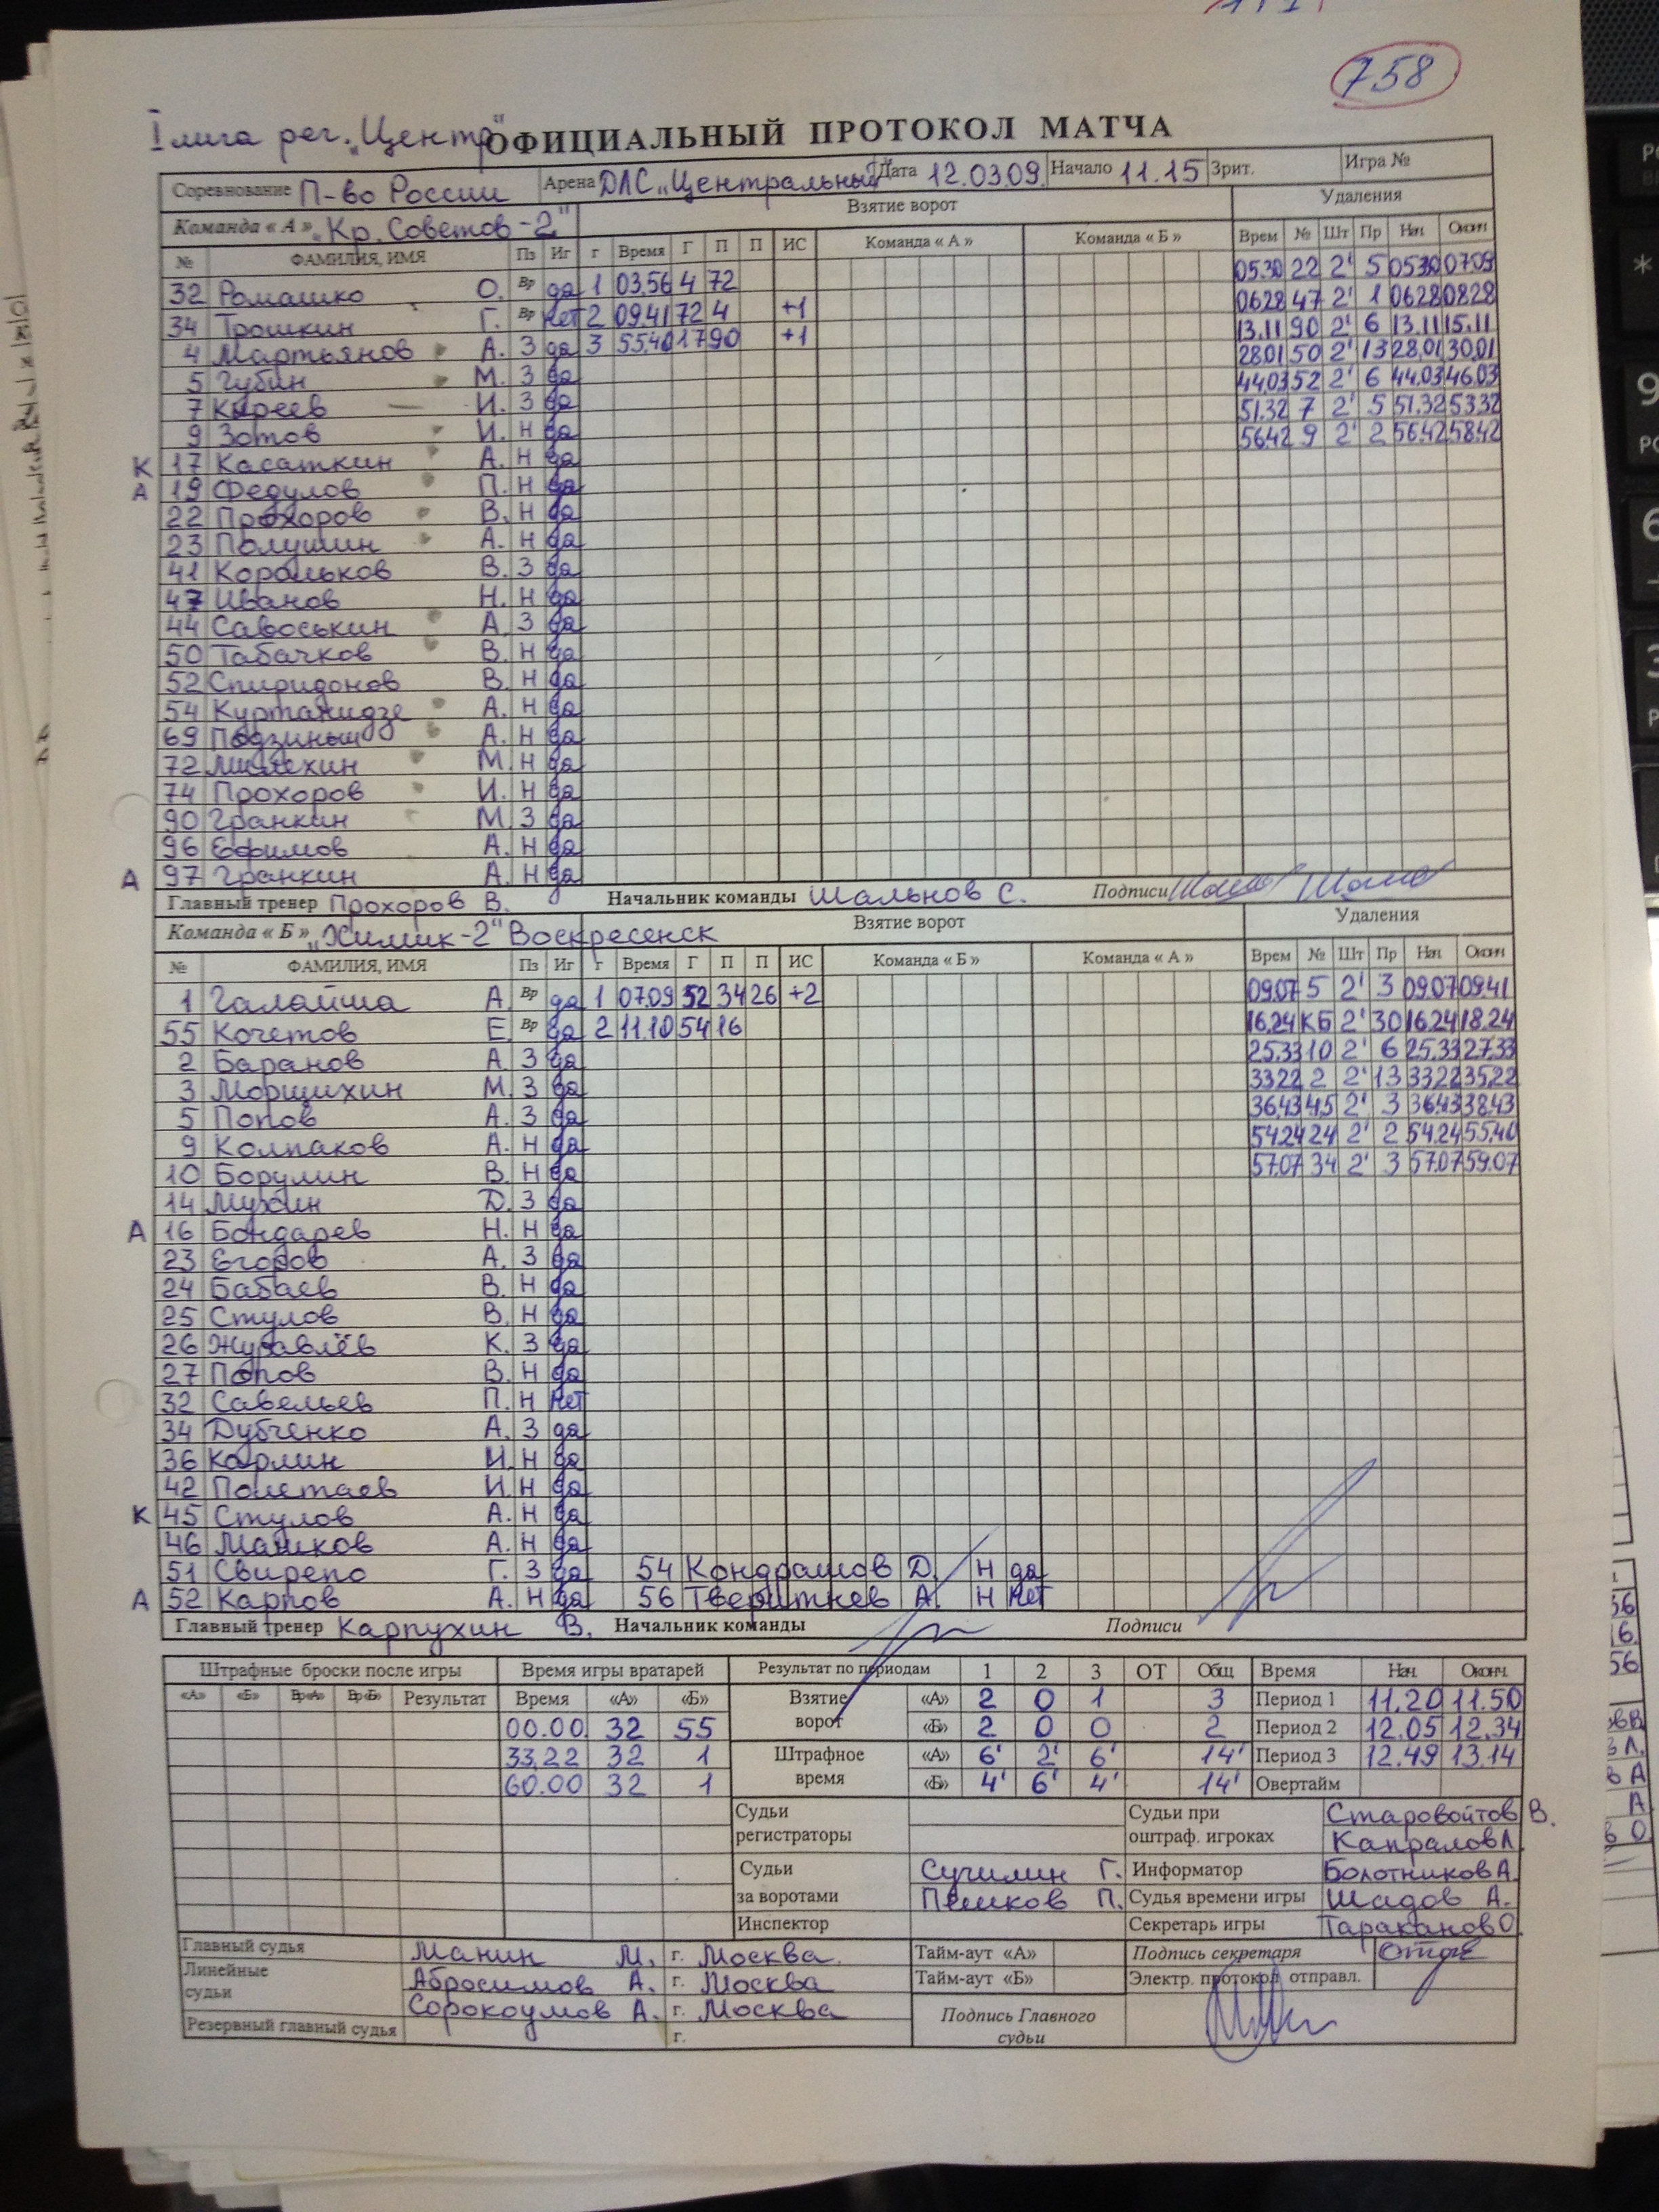 758
I лига рег. „Центр"
ОФИЦИАЛЬНЫЙ ПРОТОКОЛ МАТЧА
Соревнование П-во России Арена ДЛС „Центральный" Дата 12.03.09. Начало 11.15 Зрит. Игра №
Команда « А » „Кр. Советов-2" Взятие ворот Удаления
№ ФАМИЛИЯ, ИМЯ Пз Иг г Время Г П П ИС Команда « А » Команда « Б » Врем № Шт Пр Нач. Оконч
32 Ромашко О. Вр да 1 03.56 4 72 05.30 22 2' 5 05.30 07.09
34 Трошкин Г. Вр нет 2 09.41 72 4 +1 06.28 47 2' 1 06.28 08.28
4 Мартьянов А. З да 3 55.40 17 90 +1 13.11 90 2' 6 13.11 15.11
5 Губин М. З да 28.01 50 2' 13 28.01 30.01
7 Киреев И. З да 44.03 52 2' 6 44.03 46.03
9 Зотов И. Н да 51.32 7 2' 5 51.32 53.32
К 17 Касаткин А. Н да 56.42 9 2' 2 56.42 58.42
А 19 Федулов П. Н да
22 Прохоров В. Н да
23 Полушин А. Н да
41 Корольков В. З да
47 Иванов Н. Н да
44 Савоськин А. З да
50 Табачков В. Н да
52 Спиридонов В. Н да
54 Куртанидзе А. Н да
69 Подзиныш А. Н да
72 М. Н да
74 Прохоров И. Н да
90 Гранкин М. З да
96 Ефимов А. Н да
А 97 Гранкин А. Н да
Главный тренер Прохоров В. Начальник команды Шальнов С. Подписи
Команда « Б » „Химик-2" Воскресенск Взятие ворот Удаления
№ ФАМИЛИЯ, ИМЯ Пз Иг г Время Г П П ИС Команда « Б » Команда « А » Врем № Шт Пр Нач. Оконч
1 Галайша А. Вр да 1 07.09 52 34 26 +2 09.07 5 2' 3 09.07 09.41
55 Кочетов Е. Вр да 2 11.10 54 16 16.24 КБ 2' 30 16.24 18.24
2 Баранов А. З да 25.33 10 2' 6 25.33 27.33
3 Морщихин М. З да 33.22 2 2' 13 33.22 35.22
5 Попов А. З да 36.43 45 2' 3 36.43 38.43
9 Колпаков А. Н да 54.24 24 2' 2 54.24 55.40
10 Борулин В. Н да 57.07 34 2' 3 57.07 59.07
14 Мухин Д. З да
А 16 Бондарев Н. Н да
23 Егоров А. З да
24 Бабаев В. Н да
25 Стулов В. Н да
26 Журавлёв К. З да
27 Попов В. Н да
32 Савельев П. Н нет
34 Дубченко А. З да
36 Карлин И. Н да
42 Полетаев И. Н да
К 45 Стулов А. Н да
46 Машков А. Н да
51 Свирепо Г. З да 54 Кондрашов Д. Н да
А 52 Карпов А. Н да 56 Тверитнев А. Н нет
Главный тренер Карпухин В. Начальник команды Подписи
Штрафные броски после игры Время игры вратарей Результат по периодам 1 2 3 ОТ Общ Время Нач. Оконч.
«А» «Б» Вр«А» Вр«Б» Результат Время «А» «Б» Взятие ворот «А» 2 0 1 3 Период 1 11.20 11.50
00.00 32 55 «Б» 2 0 0 2 Период 2 12.05 12.34
33.22 32 1 Штрафное время «А» 6' 2' 6' 14' Период 3 12.49 13.14
60.00 32 1 «Б» 4' 6' 4' 14' Овертайм
Судьи регистраторы Судьи при оштраф. игроках Старовойтов В.
Капралов Л.
Судьи за воротами Сучилин Г. Информатор Болотников А.
Пешков П. Судья времени игры Шадов А.
Инспектор Секретарь игры Тараканов О.
Главный судья Манин М. г. Москва Тайм-аут «А» Подпись секретаря
Линейные судьи Абросимов А. г. Москва Тайм-аут «Б» Электр. протокол отправл.
Сорокоумов А. г. Москва Подпись Главного судьи
Резервный главный судья г.